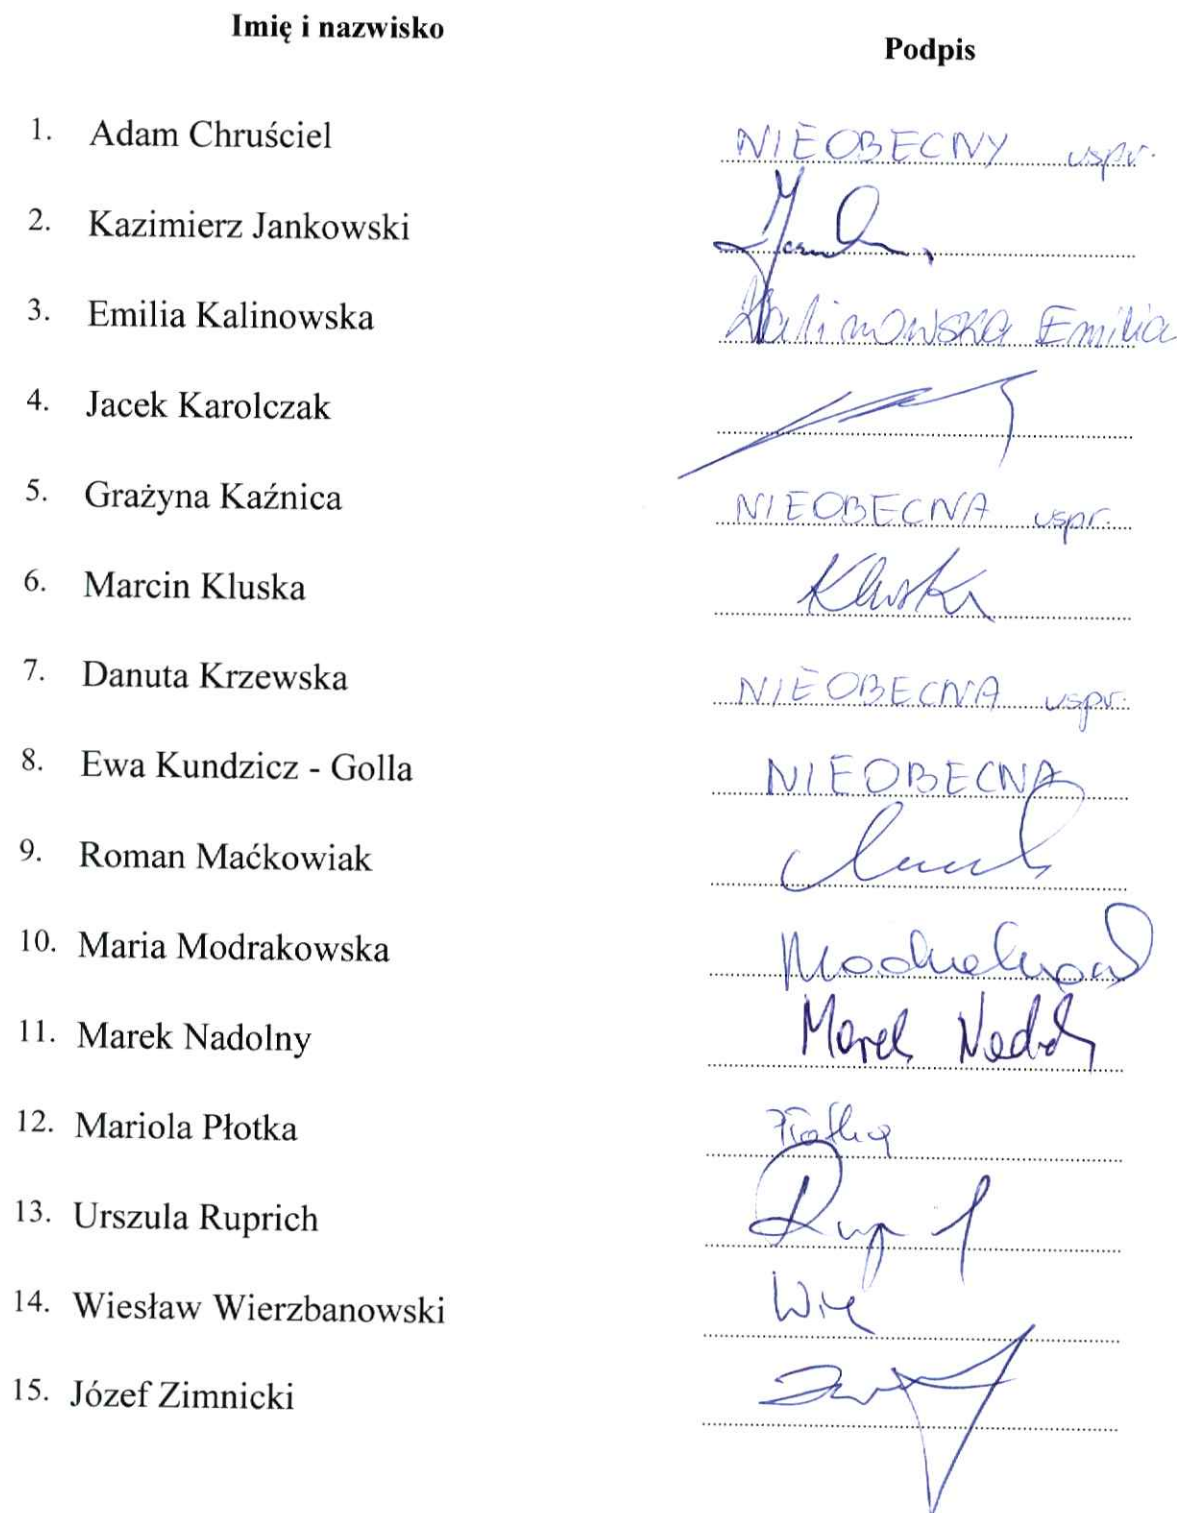 Imię i nazwisko
Podpis
1. Adam Chruściel NIEOBECNY uspr.
2. Kazimierz Jankowski
3. Emilia Kalinowska Kalinowska Emilia
4. Jacek Karolczak
5. Grażyna Kaźnica NIEOBECNA uspr.
6. Marcin Kluska Kluska
7. Danuta Krzewska NIEOBECNA uspr.
8. Ewa Kundzicz - Golla NIEOBECNA
9. Roman Maćkowiak
10. Maria Modrakowska
11. Marek Nadolny Marek
12. Mariola Płotka
13. Urszula Ruprich
14. Wiesław Wierzbanowski
15. Józef Zimnicki